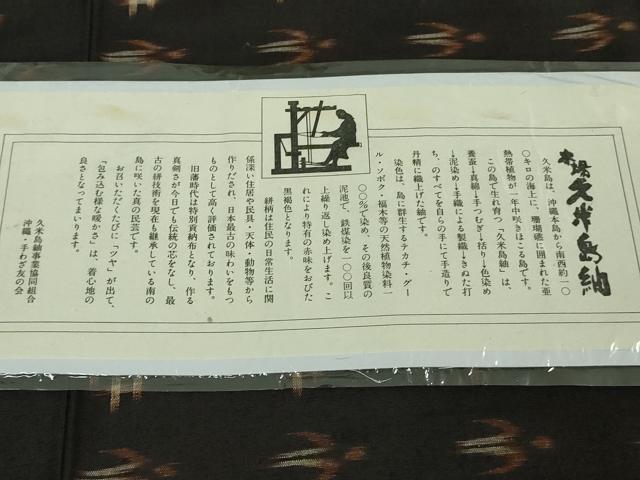 本場久米島紬
久米島は、沖縄本島から南西約一〇
〇キロの海上に、珊瑚礁に囲まれた亜
熱帯植物が一年中咲きほこる島です。
この島で生れ育つ「久米島紬」は、
養蚕→真綿→手つむぎ→括り→色染め
→泥染め→手織による製織→きぬた打
ち、のすべてを自らの手にて手造りで
丹精に織上げた紬です。
染色は、島に群生するテカチ・グー
ル・ソボク・福木等の天然植物染料
一〇〇%で染め、その後良質の
泥池で、鉄媒染を一〇〇回以
上繰り返し染め上げます。こ
れにより特有の赤味をおびた
黒褐色となります。
絣柄は住民の日常生活に関
係深い住居や民具・天体・動物等から
作りだされ、日本最古の味わいをもつ
ものとして高く評価されております。
旧藩時代は特別貢納布となり、作る
真剣さが今日でも伝統の芯をなし、最
古の絣技術を現在も継承している南の
島に咲いた真の民芸です。
お召いただくたびに「ツヤ」が出て、
「包み込む様な暖かさ」は、着心地の
良さとなってまいります。
久米島紬事業協同組合
沖縄・手わざ友の会